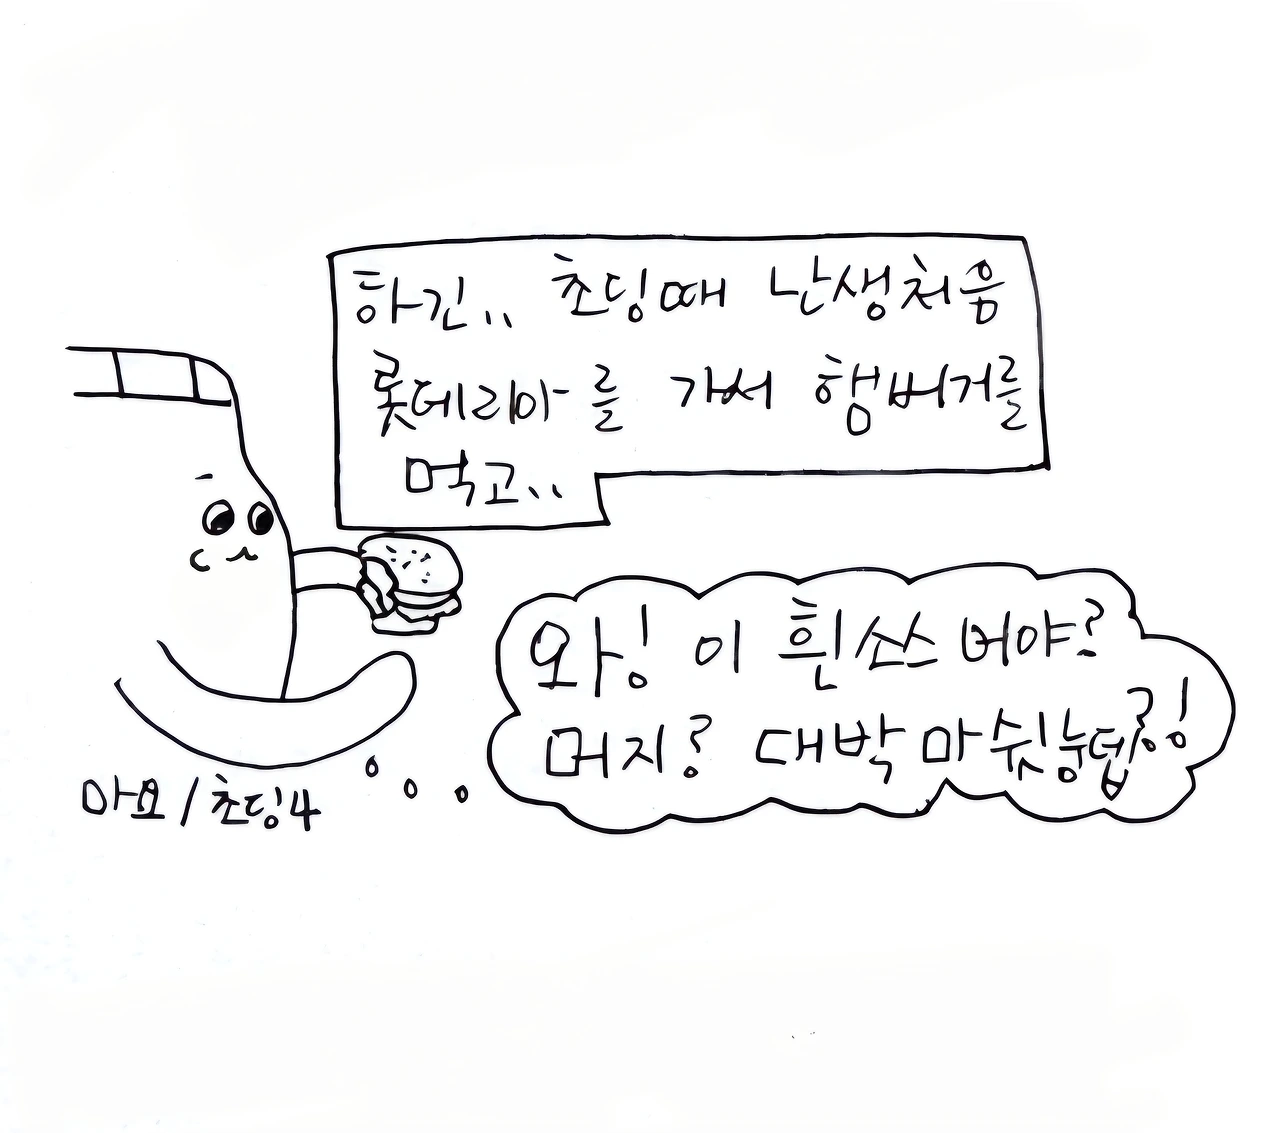 하긴.. 초딩때 난생처음
롯데리아를 가서 햄버거를
먹고..
와! 이 흰소스 머야?
머지? 대박 마쉿눈뎁?!
마요 / 초딩4